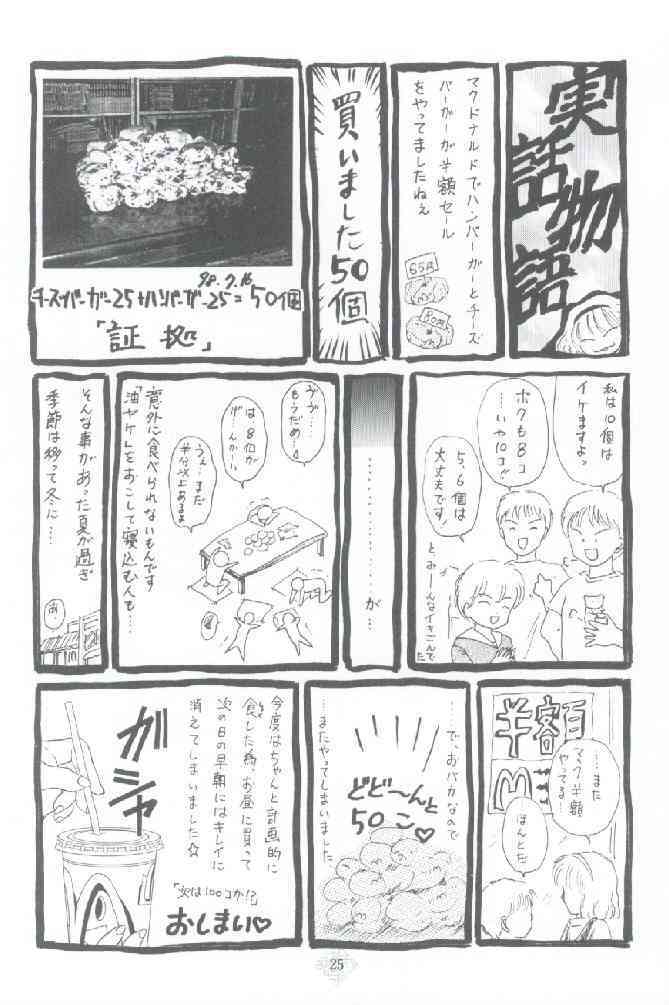 実話物語
マクドナルドでハンバーガーとチーズ
バーガーが半額セール
をやってましたねぇ
65円
80円
買いました50個
98.7.16
チーズバーガー25+ハンバーガー25=50個
「証拠」
私は10個は
イケますよっ
ボクも8コ
…いや10コ!!
5,6個は
大丈夫です!
と、みーんなイキごんでた
…………………が…
ゔゔ…
もうだめ
は8個が
げ、げんかい
うえ…まだ
半分以上あるよ
意外に食べられないもんです
「油ヤケ」をおこして寝込む人も…
そんな事があった夏が過ぎ
季節は移って冬に…
あ
半額
M
…また
マク半額
やってる
ほんとだ
……で、おバカなので
どど〜んと
50こ♡
…またやってしまいました
今度はちゃんと計画的に
食した為、お昼に買って
次の日の早朝にはキレイに
消えてしまいました☆
ガシャ
「次は100コか!?」
おしまい♡
25